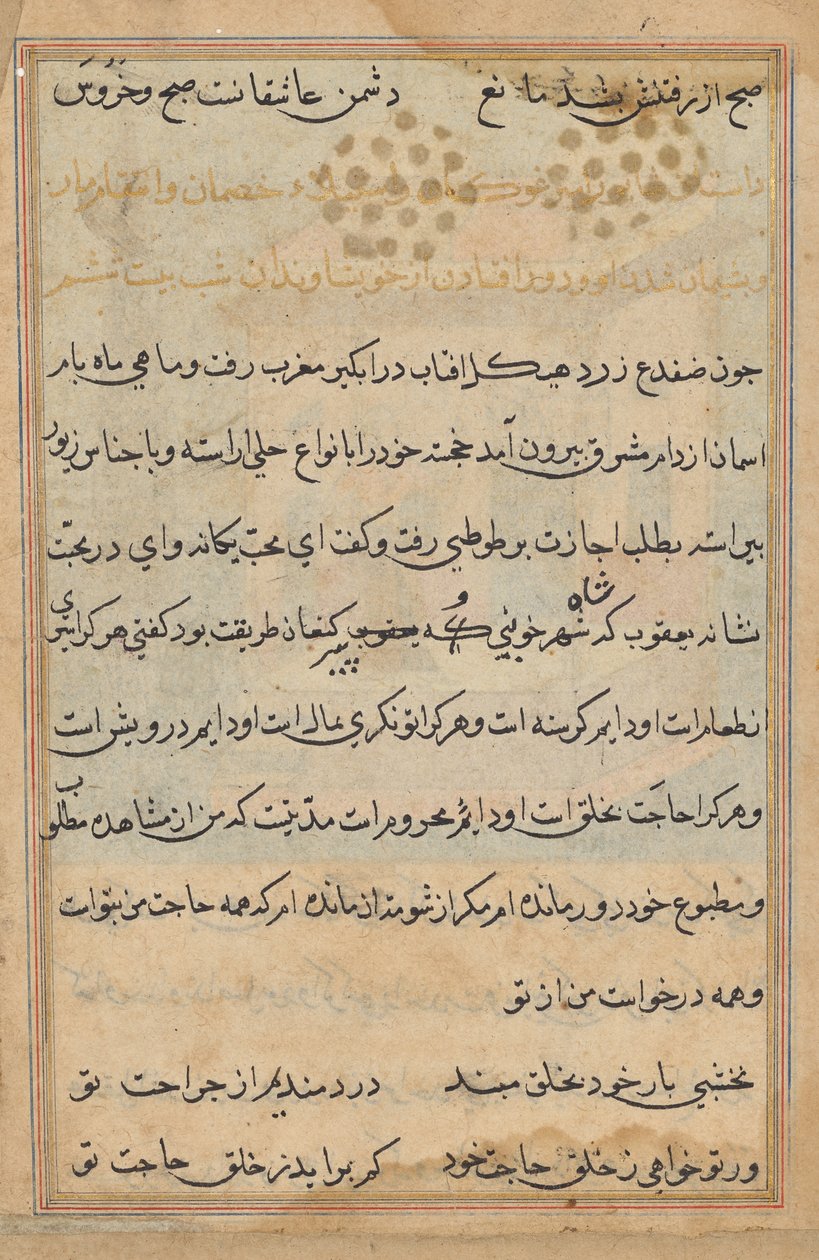 صبح از رفتنش بشد مانع دشمن عاشقانست صبح و خروس
داستان شاپور امیر غوکان و خصمان و انتقام مار
و پشیمان شدن او و دور افتادن از خویشاوندان شب بیست ششم
چون ضفدع زرد هیکل افتاب در ابکیر مغرب رفت و ماهی ماه بام
اسمان از دام مشرق بیرون آمد خجسته خود را بانواع حلی اراسته و باجناس زیور
بیراسته بطلب اجازت بر طوطی رفت و کفت ای محبّ یکانه و ای در محبّت
نشانه یعقوب که شاه شهر خوبی و پیر کنعان طریقت بود کفتی هر کرا سیری
از طعام است او دایم کرسنه است و هر کرا توَنکری بمال است او دایم درویش است
و هر کرا حاجَت بخلق است او دایم محروم است مدّتیست که من از مشاهده مطلوب
و مطبوع خود دور مانده ام مکر از شومت از مانده ام که همه حاجت من بتو است
و همه درخواست من از تو
نخشبی بار خود بخلق مبند دردمندیم از جراحت تو
ور تو خواهی ز خلق حاجت خود کم براید ز خلق حاجت تو